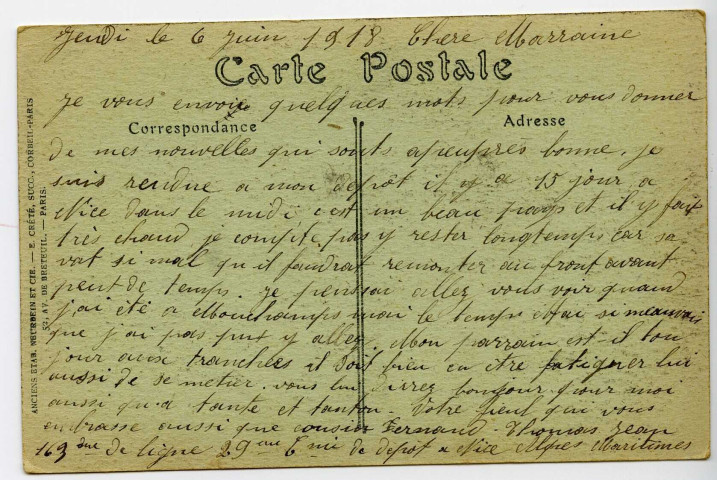 Jeudi le 6 juin 1918 Chere Marraine
Carte Postale
je vous envoie quelques mots pour vous donner
Correspondance
Adresse
de mes nouvelles qui sonts apeuprès bonne. je
suis rendue a mon depôt il y a 15 jour a
Nice dans le midi c'est un beau pays et il y fait
très chaud je compte pas y rester longtemps car sa
vat si mal qu'il faudrat remonter au front avant
peut de temps. je penssai allez vous voir quand
j'ai été a Mouchamps mai le temps etai si meauvais
que j'ai pas put y allez. Mon parrain est il tou
jour aux tranchées il doit bien en être fatiguer lui
aussi de se metier. vous lui direz bonjour pour moi
aussi qu'a tante et tonton. Votre qui vous
embrasse aussi que cousin Fernand. Thomas Jean
163 ème de ligne 29 eme Cnie de depot a Nice Alpes Maritimes
ANCIENS ETAB. NEURDEIN ET CIE. — E. CRÉTÉ, SUCC., CORBEIL-PARIS
52, AV. DE BRETEUIL. — PARIS.